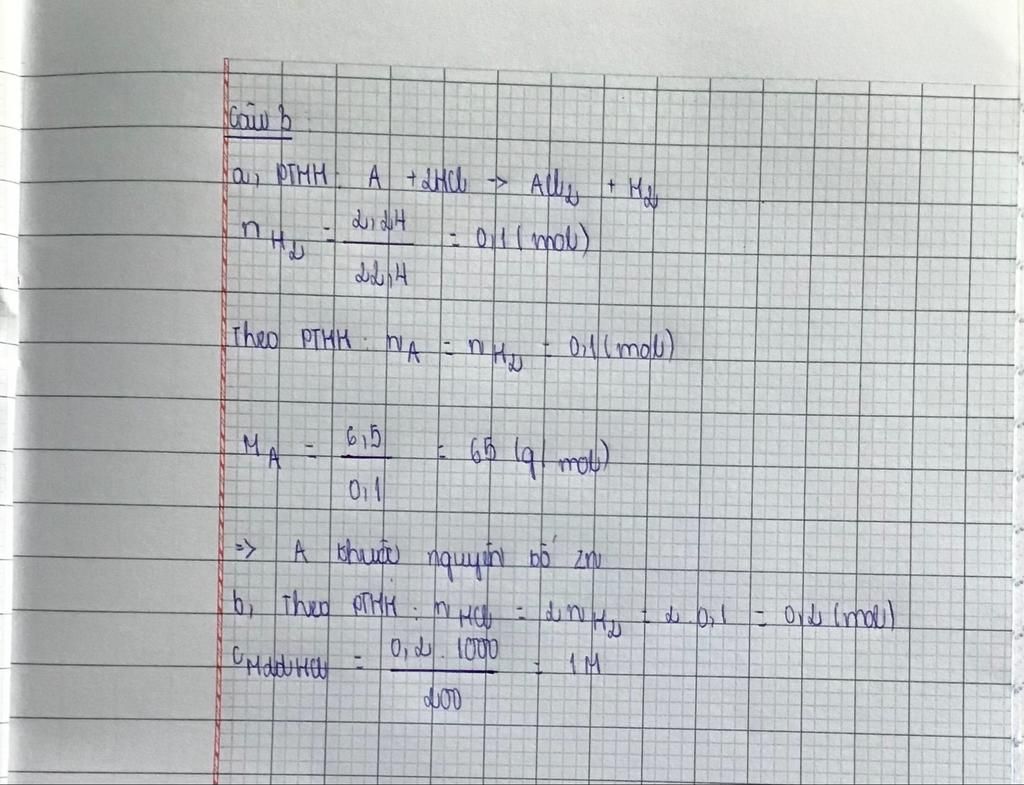 Câu 3
a, PTHH: A + 2HCl → ACl₂ + H₂
n H₂ = 2,24 / 22,4 = 0,1 (mol)
Theo PTHH: n A = n H₂ = 0,1 (mol)
M A = 6,5 / 0,1 = 65 (g/mol)
=> A thuộc nguyên tố Zn
b, Theo PTHH: n HCl = 2 n H₂ = 2. 0,1 = 0,2 (mol)
C M dd HCl = 0,2 . 1000 / 200 = 1M